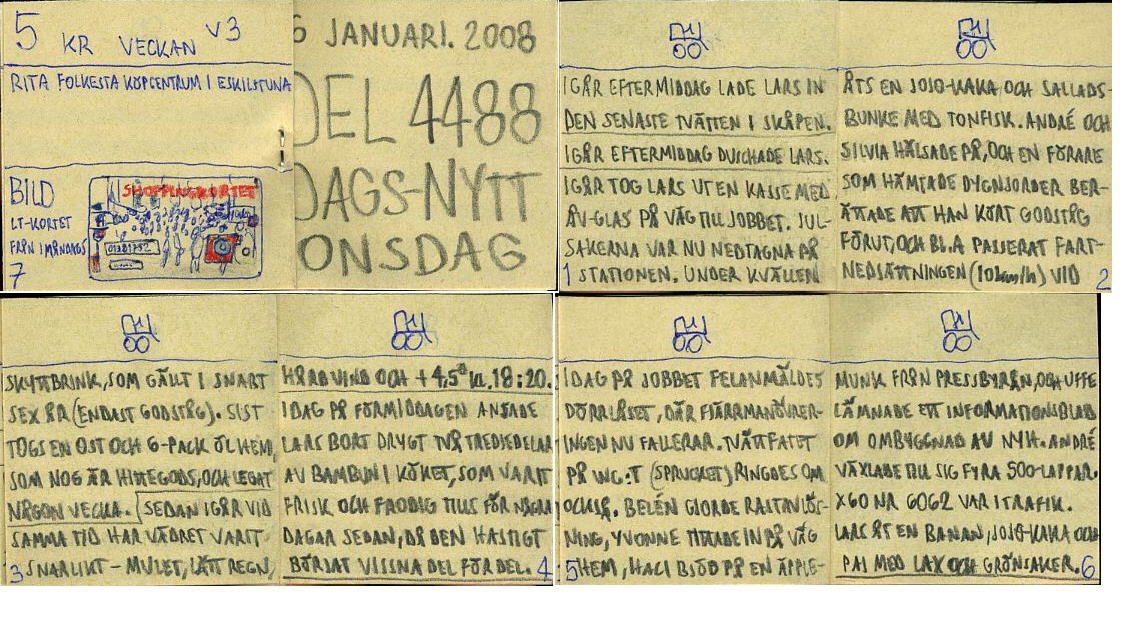 5 KR VECKAN V3
RITA FOLKESTA KÖPCENTRUM I ESKILSTUNA
BILD
LT-KORTET
FRÅN I MÅNDAGS
7
SHOPPINGKORTET
JANUARI. 2008
DEL 4488
DAGS-NYTT
ONSDAG
IGÅR EFTERMIDDAG LADE LARS IN
DEN SENASTE TVÄTTEN I SKÅPEN.
IGÅR EFTERMIDDAG DUSCHADE LARS.
IGÅR TOG LARS UT EN KASSE MED
ÅV-GLAS PÅ VÄG TILL JOBBET. JUL-
SAKERNA VAR NU NEDTAGNA PÅ
1 STATIONEN. UNDER KVÄLLEN
ÅTS EN JOJO-KAKA OCH SALLADS-
BUNKE MED TONFISK. ANDRÉ OCH
SILVIA HÄLSADE PÅ, OCH EN FÖRARE
SOM HÄMTADE DYGNSORDER BER-
ÄTTADE ATT HAN KÖRT GODSTÅG
FÖRUT, OCH BL.A PASSERAT FART-
NEDSÄTTNINGEN (10 km/h) VID
2
SKYTTBRINK, SOM GÄLLT I SNART
SEX ÅR (ENDAST GODSTÅG). SIST
TOGS EN OST OCH 6-PACK ÖL HEM,
SOM NOG ÄR HITTEGODS, OCH LEGAT
NÅGON VECKA. SEDAN IGÅR VID
SAMMA TID HAR VÄDRET VARIT
3 SNARLIKT - MULET, LÄTT REGN,
HÅRD VIND OCH +4,5° KL. 18:20.
IDAG PÅ FÖRMIDDAGEN ANSADE
LARS BORT DRYGT TVÅ TREDJEDELAR
AV BAMBUN I KÖKET, SOM VARIT
FRISK OCH FRODIG TILLS FÖR NÅGRA
DAGAR SEDAN, DÅ DEN HASTIGT
BÖRJAT VISSNA DEL FÖR DEL. 4
IDAG PÅ JOBBET FELANMÄLDES
DÖRRLÅSET, DÄR FJÄRRMANÖVRER-
INGEN NU FALLERAR. TVÄTTFATET
PÅ WC:T (SPRUCKET) RINGDES OM
OCKSÅ. BELÉN GJORDE RASTAVLÖS-
NING, YVONNE TITTADE IN PÅ VÄG
5 HEM, HACI BJÖD PÅ EN ÄPPLE-
MUNK FRÅN PRESSBYRÅN, OCH UFFE
LÄMNADE ETT INFORMATIONSBLAD
OM OMBYGGNAD AV NYH. ANDRÉ
VÄXLADE TILL SIG FYRA 500-LAPPAR.
X60 NR 6062 VAR I TRAFIK.
LARS ÅT EN BANAN, JOJO-KAKA OCH
PAJ MED LAX OCH GRÖNSAKER. 6